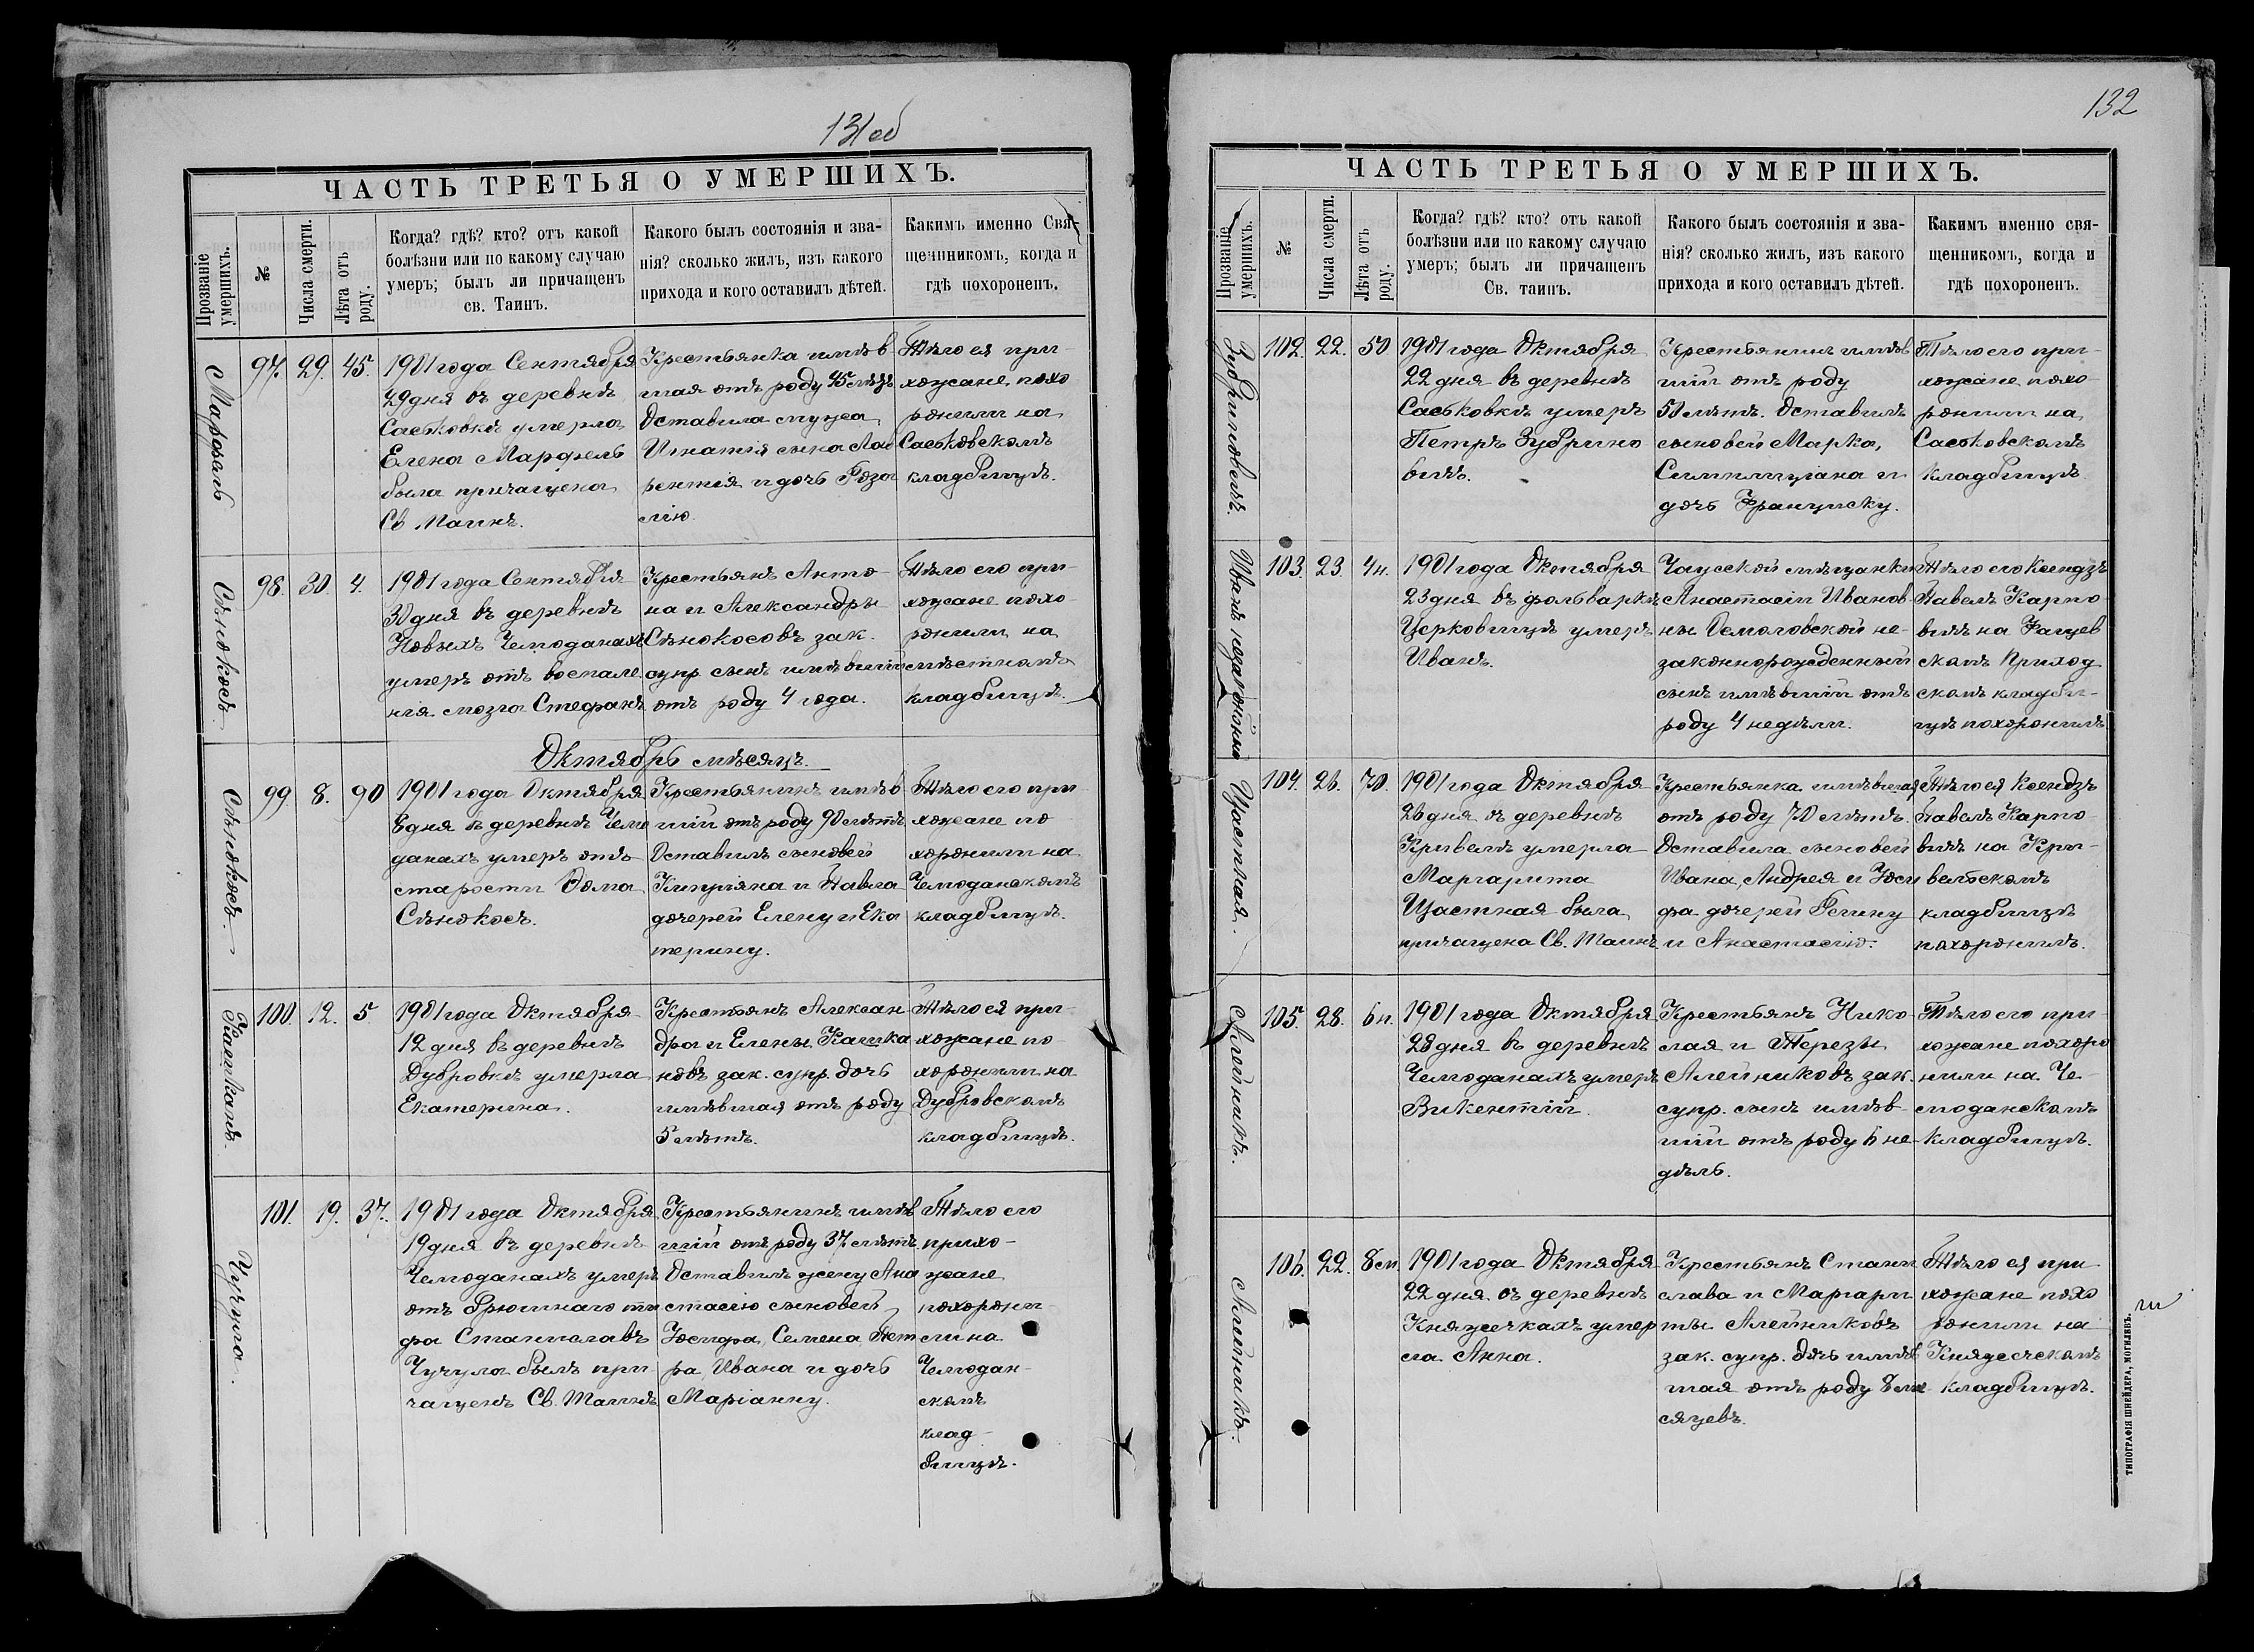 131об
ЧАСТЬ ТРЕТЬЯ О УМЕРШИХЪ.
Прозваніе умершихъ.
№
Числа смерти.
Лѣта отъ роду.
Когда? гдѣ? кто? отъ какой
болѣзни или по какому случаю
умеръ; былъ ли причащенъ
св. Таинъ.
Какого былъ состоянія и зва-
нія? сколько жилъ, изъ какого
прихода и кого оставилъ дѣтей.
Какимъ именно Свя-
щенникомъ, когда и
гдѣ похороненъ.
Марфель
97. 29. 45.
1901 года Сентября
29 дня въ деревнѣ
Саськовкѣ умерла
Елена Марфель
была причащена
Св Таинъ.
Крестьянка имѣв
шая отъ роду 45 лѣтъ
Оставила мужа
Игнатія сына Лав
рентія и дочь Роза
лію
Тѣло ея при-
хожане похо
ронили на
Саськовскомъ
кладбищѣ.
Сѣнокосъ
98. 30. 4.
1901 года Сентября
30 дня въ деревнѣ
Новыхъ Чемоданахъ
умеръ отъ воспале
нія мозга Стефанъ
Крестьянъ Анто-
на и Александры
Сѣнокосовъ зак.
супр. сынъ имѣвшій
отъ роду 4 года.
Тѣло его при-
хожане похо-
ронили на
мѣстномъ
кладбищѣ.
Октябрь мѣсяцъ.
Сѣнокосъ.
99. 8. 90
1901 года Октября
8 дня въ деревнѣ Чемо
данахъ умеръ отъ
старости Ѳома
Сѣнокосъ.
Крестьянинъ имѣв
шій отъ роду 90 лѣтъ
Оставилъ сыновей
Кипріяна и Павла
дочерей Елену и Ека
терину.
Тѣло его при
хожане по
хоронили на
Чемоданскомъ
кладбищѣ.
Кашканъ.
100. 12. 5
1901 года Октября
12 дня въ деревнѣ
Дубровкѣ умерла
Екатерина.
Крестьянъ Алексан
дра и Елены Кашка
новъ зак. супр. дочь
имѣвшая отъ роду
5 лѣтъ.
Тѣло ея при-
хожане по
хоронили на
Дубровскомъ
кладбищѣ.
Чучула.
101. 19. 37.
1901 года Октября
19 дня въ деревнѣ
Чемоданахъ умеръ
отъ брюшнаго ти
фа Станиславъ
Чучула былъ при
чащенъ Св. Таинъ
Крестьянинъ имѣв
шій отъ роду 37 лѣтъ
Оставилъ жену Ана
стасію сыновей
Іосифа, Семена Пет
ра, Ивана и дочь
Маріанну.
Тѣло его
прихо-
жане
похорони-
ли на
Чемодан-
скомъ
клад-
бищѣ.
132
ЧАСТЬ ТРЕТЬЯ О УМЕРШИХЪ.
Прозваніе умершихъ.
№
Числа смерти.
Лѣта отъ роду.
Когда? гдѣ? кто? отъ какой
болѣзни или по какому случаю
умеръ; былъ ли причащенъ
Св. таинъ.
Какого былъ состоянія и зва-
нія? сколько жилъ, изъ какого
прихода и кого оставилъ дѣтей.
Какимъ именно свя-
щенникомъ, когда и
гдѣ похороненъ.
Зубриновичъ.
102. 22. 50
1901 года Октября
22 дня въ деревнѣ
Саськовкѣ умеръ
Петръ Зубрино
вичъ.
Крестьянинъ имѣв
шій отъ роду
50 лѣтъ. Оставилъ
сыновей Марка,
Симплиціана и
дочь Франциску.
Тѣло его при-
хожане похо-
ронили на
Саськовскомъ
кладбищѣ
Иванъ незаконный
103. 23. 4н.
1901 года Октября
23 дня въ фольваркѣ
Церковищѣ умеръ
Иванъ.
Чаусской мѣщанки
Анастасіи Иванов-
ны Осмоловской не-
законнорожденный
сынъ имѣвшій отъ
роду 4 недѣли.
Тѣло его Ксендзъ
Павелъ Карпо-
вичъ на Фащев
скомъ Приход
скомъ кладби-
щѣ похоронилъ.
Щастная.
104. 26. 70.
1901 года Октября
26 дня въ деревнѣ
Кривелѣ умерла
Маргарита
Щастная была
причащена Св. Таинъ
Крестьянка имѣвшая
отъ роду 70 лѣтъ.
Оставила сыновей
Ивана, Андрея и Іоси
фа дочерей Регину
и Анастасію.
Тѣло ея Ксендзъ
Павелъ Карпо-
вичъ на Кри-
вельскомъ
кладбищѣ
похоронилъ.
Алейникъ.
105. 28. 6н.
1901 года Октября
28 дня въ деревнѣ
Чемоданахъ умеръ
Викентій.
Крестьянъ Нико-
лая и Терезы
Алейниковъ зак.
супр. сынъ имѣв-
шій отъ роду 6 не-
дѣль.
Тѣло его при-
хожане похоро
нили на Че-
моданскомъ
кладбищѣ.
Алейникъ.
106. 22. 8м.
1901 года Октября
22 дня въ деревнѣ
Княжечкахъ умер
ла Анна.
Крестьянъ Стани
слава и Маргари
ты Алейниковъ
зак. супр. дочь имѣв
шая отъ роду 8 мѣ
сяцевъ.
Тѣло ея при
хожане похо
ронили на
Княжеческомъ
кладбищѣ.
ТИПОГРАФІЯ ШНЕЙДЕРА, МОГИЛЕВЪ.